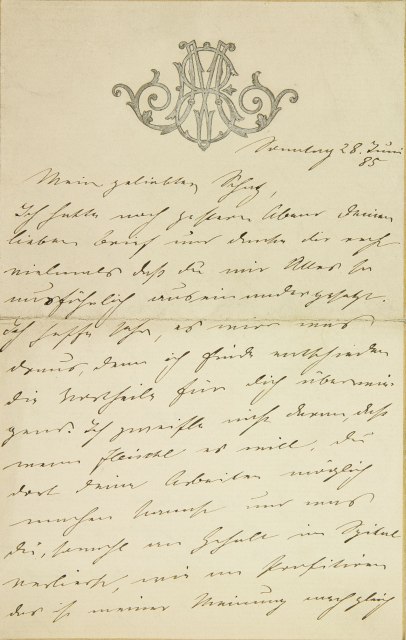 Sonntag 28. Juni
85
Mein geliebter Schatz,
Ich hatte noch gestern Abend Deinen
lieben Brief und danke dir recht
vielmals daß du mir Alles so
ausführlich auseinandergesetzt.
Ich hoffe sehr, es wird was
draus, denn ich finde entschieden
die Vortheile für dich überwie-
gend. Ich zweifle nicht daran, daß
wenn Fleischl es will, du
dort deine Arbeiten möglich
machen kannst und was
du, sowohl an Gehalt im Spital
verlierst, wie an
das ist meiner Meinung nach gleich